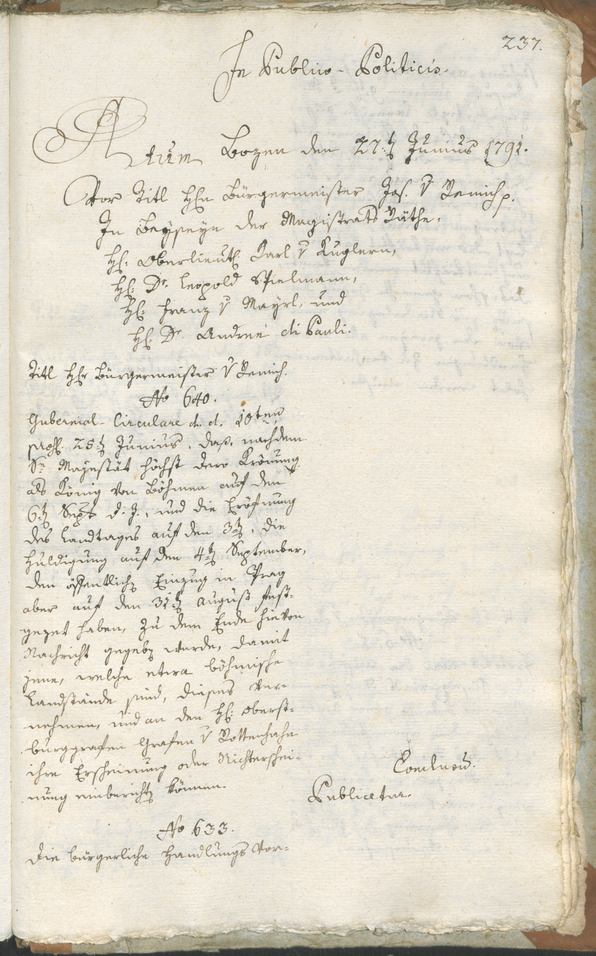 237.
In Publico-Politicis.
Actum Bozen den 27.t Junius 1791.
Vor Titl H. Bürgermeister Jos. v Remich p.
In Beyseyn der Magistrats Räthe,
H. Oberlieut. Carl v Kuglern,
H. Dr. Leopold Spielmann,
H. Franz v Mayrl, und
H. Dr. Andreè di Pauli.
Titl H. Bürgermeister v Remich.
No 640.
Gubernial-Circulare d. d. 10ten
25t Junius, daß, nachdem
Se Majestät höchst dero Krönung
als König von Böhmen auf den
6t Sept. d. J., und die Eröfnung
des Landtages auf den 3t, die
Huldigung auf den 4t September,
den öffentlich Einzug in Prag
aber auf den 31t August fest-
gezet haben, zu dem Ende hievon
Nachricht gegeben werde, damit
jene, welche etwa böhmische
Landstände sind, dieses ver-
nehmen, und an den H. Oberst-
burggrafen Grafen v Rottenhahn
ihre Erscheinung oder Nichterschei-
nung einberichten können.
Conclusum.
Publicetur.
No 633.
Die bürgerliche Handlungs Vor-